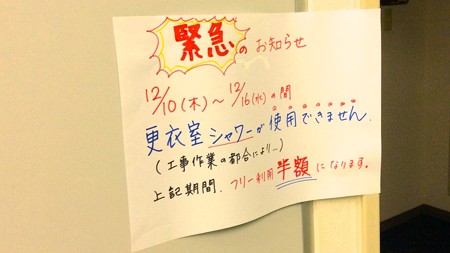 緊急のお知らせ
12/10(木)〜12/16(水)の間
更衣室シャワーが使用できません.
(工事作業の都合により…)
上記期間.フリー利用半額になります。